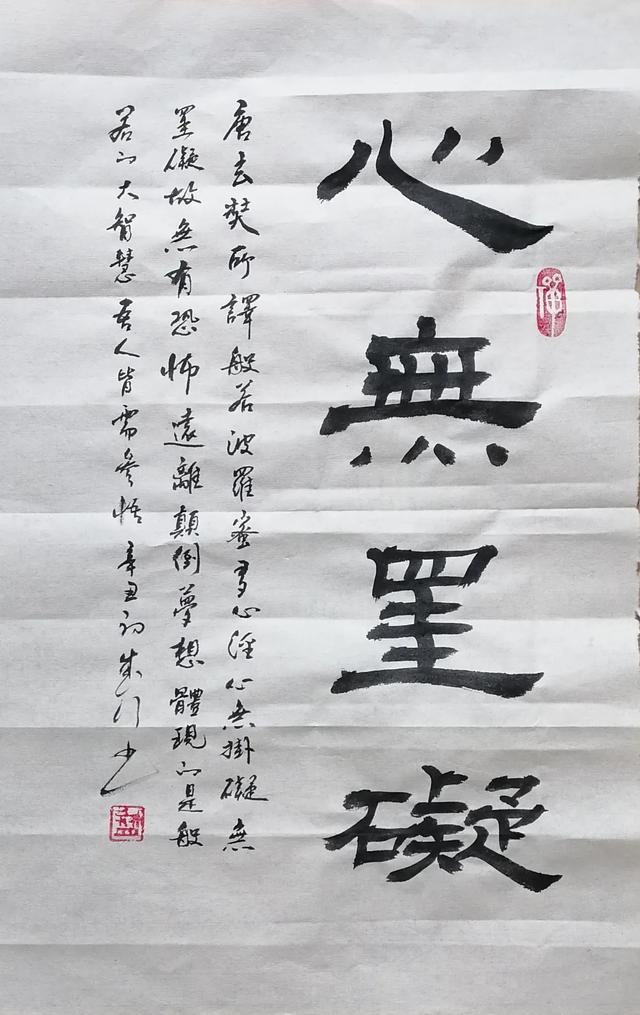 心無罣礙
唐玄奘所譯般若波羅蜜多心經心無掛礙無
罣礙故無有恐怖遠離顛倒夢想體現的是般
若的大智慧吾人皆需參悟辛丑初
禪